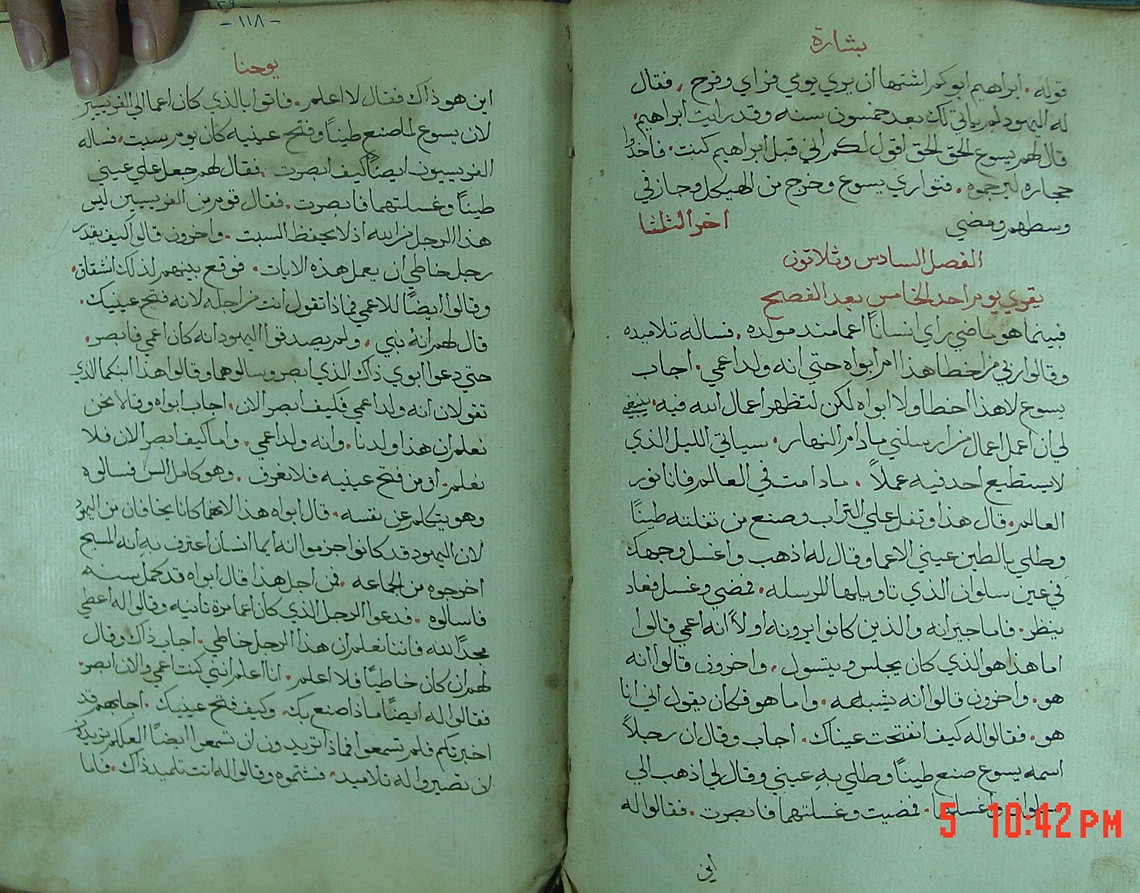 بشارة
قوله. ابراهيم ابوكم اشتها ان يري يومي فراي وفرح. فقال
له اليهود لم ياتي لك بعد خمسون سنه وقد رايت ابراهيم.
قال لهم يسوع الحق الحق اقول لكم اني قبل ابراهيم كنت. فاخذوا
حجاره ليرجموه. فتواري يسوع وخرج من الهيكل وجاز في
وسطهم ومضي اخر الثلثا
الفصل السادس وثلاتون
يقري يوم احد الخامس بعد الفصح
فبينما هو ماضي راي انسانا اعما مند مولده. فساله تلاميده
وقالوا ربي من اخطا هذا ام ابواه حتي انه ولد اعمي. اجاب
يسوع لا هذا اخطا ولا ابواه لكن لتظهر اعمال الله فيه. ينبغي
لي ان اعمل اعمال من ارسلني ما دام النهار. سياتي الليل الذي
لا يستطيع احد فيه عملاً. ما دامت في العالم فانا نور
العالم. قال هذا وتفل علي التراب وصنع من تفلته طيناً
وطلي بالطين عيني الاعما وقال له اذهب واغسل وجهك
في عين سلوان الذي تاويلها المرسله. فمضي وغسل فعاد
ينظر. فاما جيرانه والذين كانوا يرونه اولاً انه اعمي قالوا
اما هذا هو الذي كان يجلس ويتسول. واخرون قالوا انه
هو. واخرون قالوا انه يشبهه. واما هو فكان يقول اني انا
هو. فقالوا له كيف انفتحت عيناك. اجاب وقال ان رجلاً
اسمه يسوع صنع طيناً وطلي به عيني وقال لي اذهب الي
سلوان واغسلها. فمضيت وغسلتهما فابصرت. فقالوا له
اين
5 10:42 PM
-١١٨-
يوحنا
اين هو ذاك فقال لا اعلم. فاتوا بالذي كان اعما الي الفريسيين
لان يسوع لما صنع طيناً وفتح عينيه كان يوم سبت. فساله
الفريسيون ايضاً كيف ابصرت. فقال لهم جعل علي عيني
طيناً وغسلتهما فابصرت. فقال قوم من الفريسيين ليس
هذا الرجل من الله اذ لا يحفظ السبت. واخرون قالوا كيف يقدر
رجل خاطي ان يعمل هذه الايات. فوقع بينهم لذلك انشقاق.
وقالوا ايضاً للاعمي فماذا تقول انت من اجله لانه فتح عينيك.
قال لهم انه نبي. ولم يصدقوا اليهود انه كان اعمي فابصر.
حتي دعوا ابوي ذاك الذي ابصر وسالوهما وقالوا هذا ابنكما الذي
تقولان انه ولد اعمي فكيف ابصر الان. اجاب ابواه وقالا نحن
نعلم ان هذا ولدنا. وانه ولد اعمي. واما كيف ابصر الان فلا
نعلم. او من فتح عينيه فلا نعرف. وهو كامل السن فسالوه
وهو يتكلم عن نفسه. قال ابواه هذا لانهما كانا يخافان من اليهود
لان اليهود قد كانوا جزموا انه ايما انسان اعترف به انه المسيح
اخرجوه من الجماعه. فمن اجل هذا قال ابواه قد كمل سنه
فاسالوه. فدعوا الرجل الذي كان اعما مرة تانيه وقالوا له اعطي
مجداً لله فاننا نعلم ان هذا الرجل خاطي. اجاب ذاك وقال
لهم ان كان خاطياً فلا اعلم. انا اعلم انني كنت اعمي والان ابصر.
فقالوا له ايضاً ماذا صنع بك. وكيف فتح عينيك. اجابهم قد
اخبرتكم فلم تسمعوا فماذا تريدون ان تسمعوا ايضاً العلكم تريدون
ان تصيروا له تلاميد. فشتموه وقالوا له انت تلميد ذاك. فاما